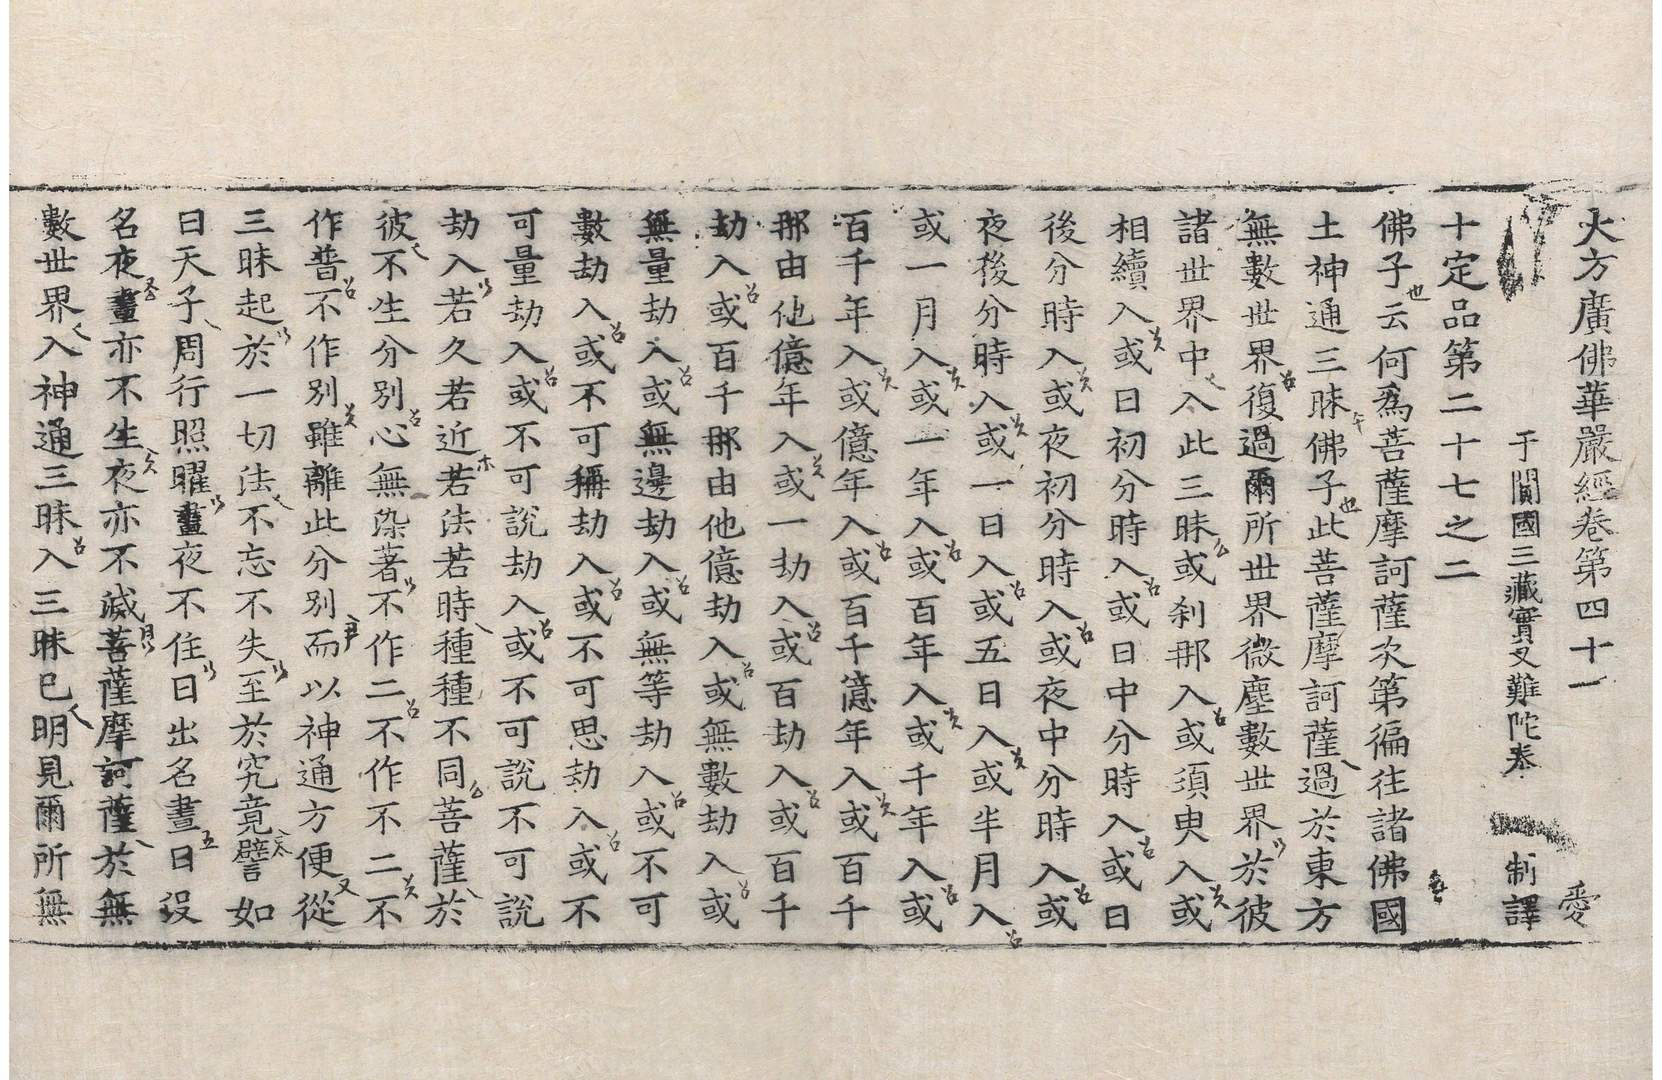 大方廣佛華嚴經卷第四十一　愛
于闐國三藏實叉難陀奉　制譯
十定品第二十七之二
佛子云何為菩薩摩訶薩次第徧往諸佛國
土神通三昧佛子此菩薩摩訶薩過於東方
無數世界復過爾所世界微塵數世界於彼
諸世界中入此三昧或剎那入或須臾入或
相續入或日初分時入或日中分時入或日
後分時入或夜初分時入或夜中分時入或
夜後分時入或一日入或五日入或半月入
或一月入或一年入或百年入或千年入或
百千年入或億年入或百千億年入或百千
那由他億年入或一劫入或百劫入或百千
劫入或百千那由他億劫入或無數劫入或
無量劫入或無邊劫入或無等劫入或不可
數劫入或不可稱劫入或不可思劫入或不
可量劫入或不可說劫入或不可說不可說
劫入若久若近若法若時種種不同菩薩於
彼不生分別心無染著不作二不作不二不
作普不作別雖離此分別而以神通方便從
三昧起於一切法不忘不失至於究竟譬如
日天子周行照曜晝夜不住日出名晝日沒
名夜晝亦不生夜亦不滅菩薩摩訶薩於無
數世界入神通三昧入三昧已明見爾所無